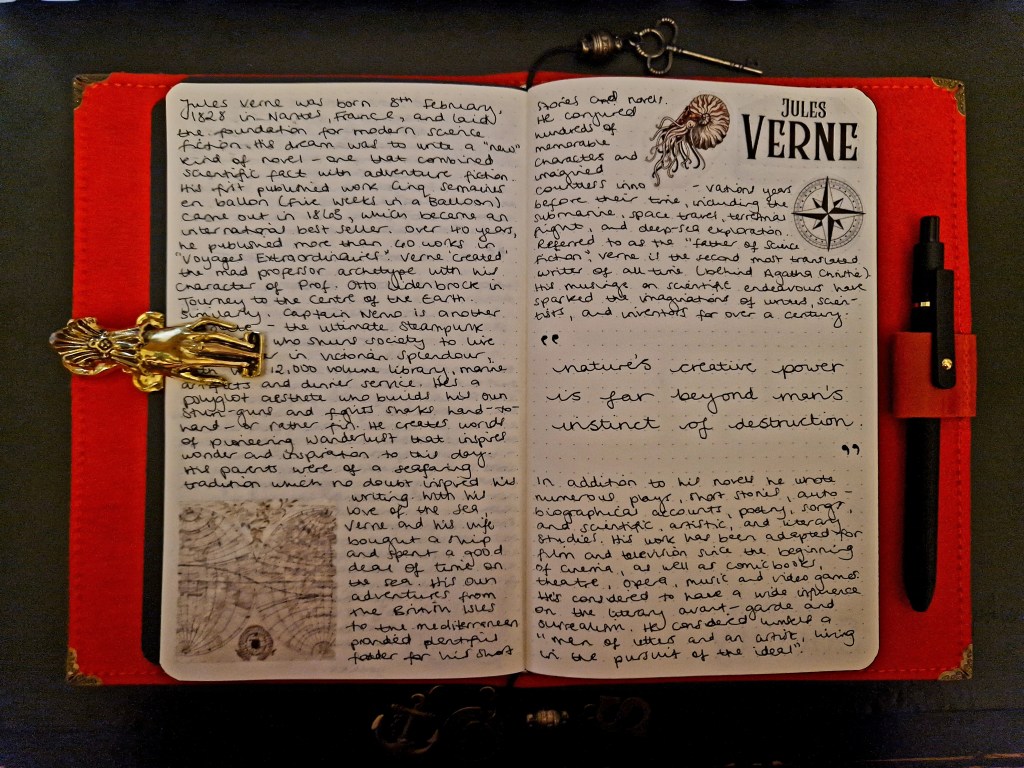 Jules Verne was born 8th February,
1828 in Nantes, France, and laid
the foundation for modern science
fiction. His dream was to write a "new"
kind of novel - one that combined
scientific fact with adventure fiction.
His first published work Cinq semaines
en ballon (Five weeks in a Balloon)
came out in 1863, which became an
international best seller. Over 40 years,
he published more than 60 works in
"Voyages Extraordinaires". Verne 'created'
the mad professor archetype with his
character of Prof. Otto Lidenbrock in
Journey to the Centre of the Earth.
Similarly, Captain Nemo is another
- the ultimate Steampunk
who shuns society to live
in Victorian Splendour,
12,000 volume library, marine
and dinner service. He's a
polyglot aesthete who builds his own
stun-guns and fights sharks hand-to-
hand - or rather fin. He creates worlds
of pioneering wanderlust that inspires
wonder and inspiration to this day.
His parents were of a seafaring
tradition which no doubt inspired his
writing. With his
love of the sea,
Verne and his wife
bought a ship
and spent a good
deal of time on
the sea. His own
adventures from
the British Isles
to the mediterranean
provided plentiful
fodder for his short
stories and novels.
He conjured
hundreds of
memorable
characters and
imagined
countless inno - vations years
before their time, including the
submarine, space travel, terrestrial
flight, and deep-sea exploration.
Referred to as the "father of Science
Fiction", Verne is the second most translated
writer of all time (behind Agatha Christie).
His musings on scientific endeavours have
sparked the imaginations of writers, scien-
tists, and inventors for over a century.
JULES
VERNE
"
nature's creative power
is far beyond man's
instinct of destruction.
"
In addition to his novels he wrote
numerous plays, short stories, auto-
biographical accounts, poetry, songs,
and scientific, artistic, and literary
studies. His work has been adapted for
film and television since the beginning
of cinema, as well as comic books,
theatre, opera, music and video games.
He's considered to have a wide influence
on the literary avant-garde and
surrealism. He considered himself a
"man of letters and an artist, living
in the pursuit of the ideal".